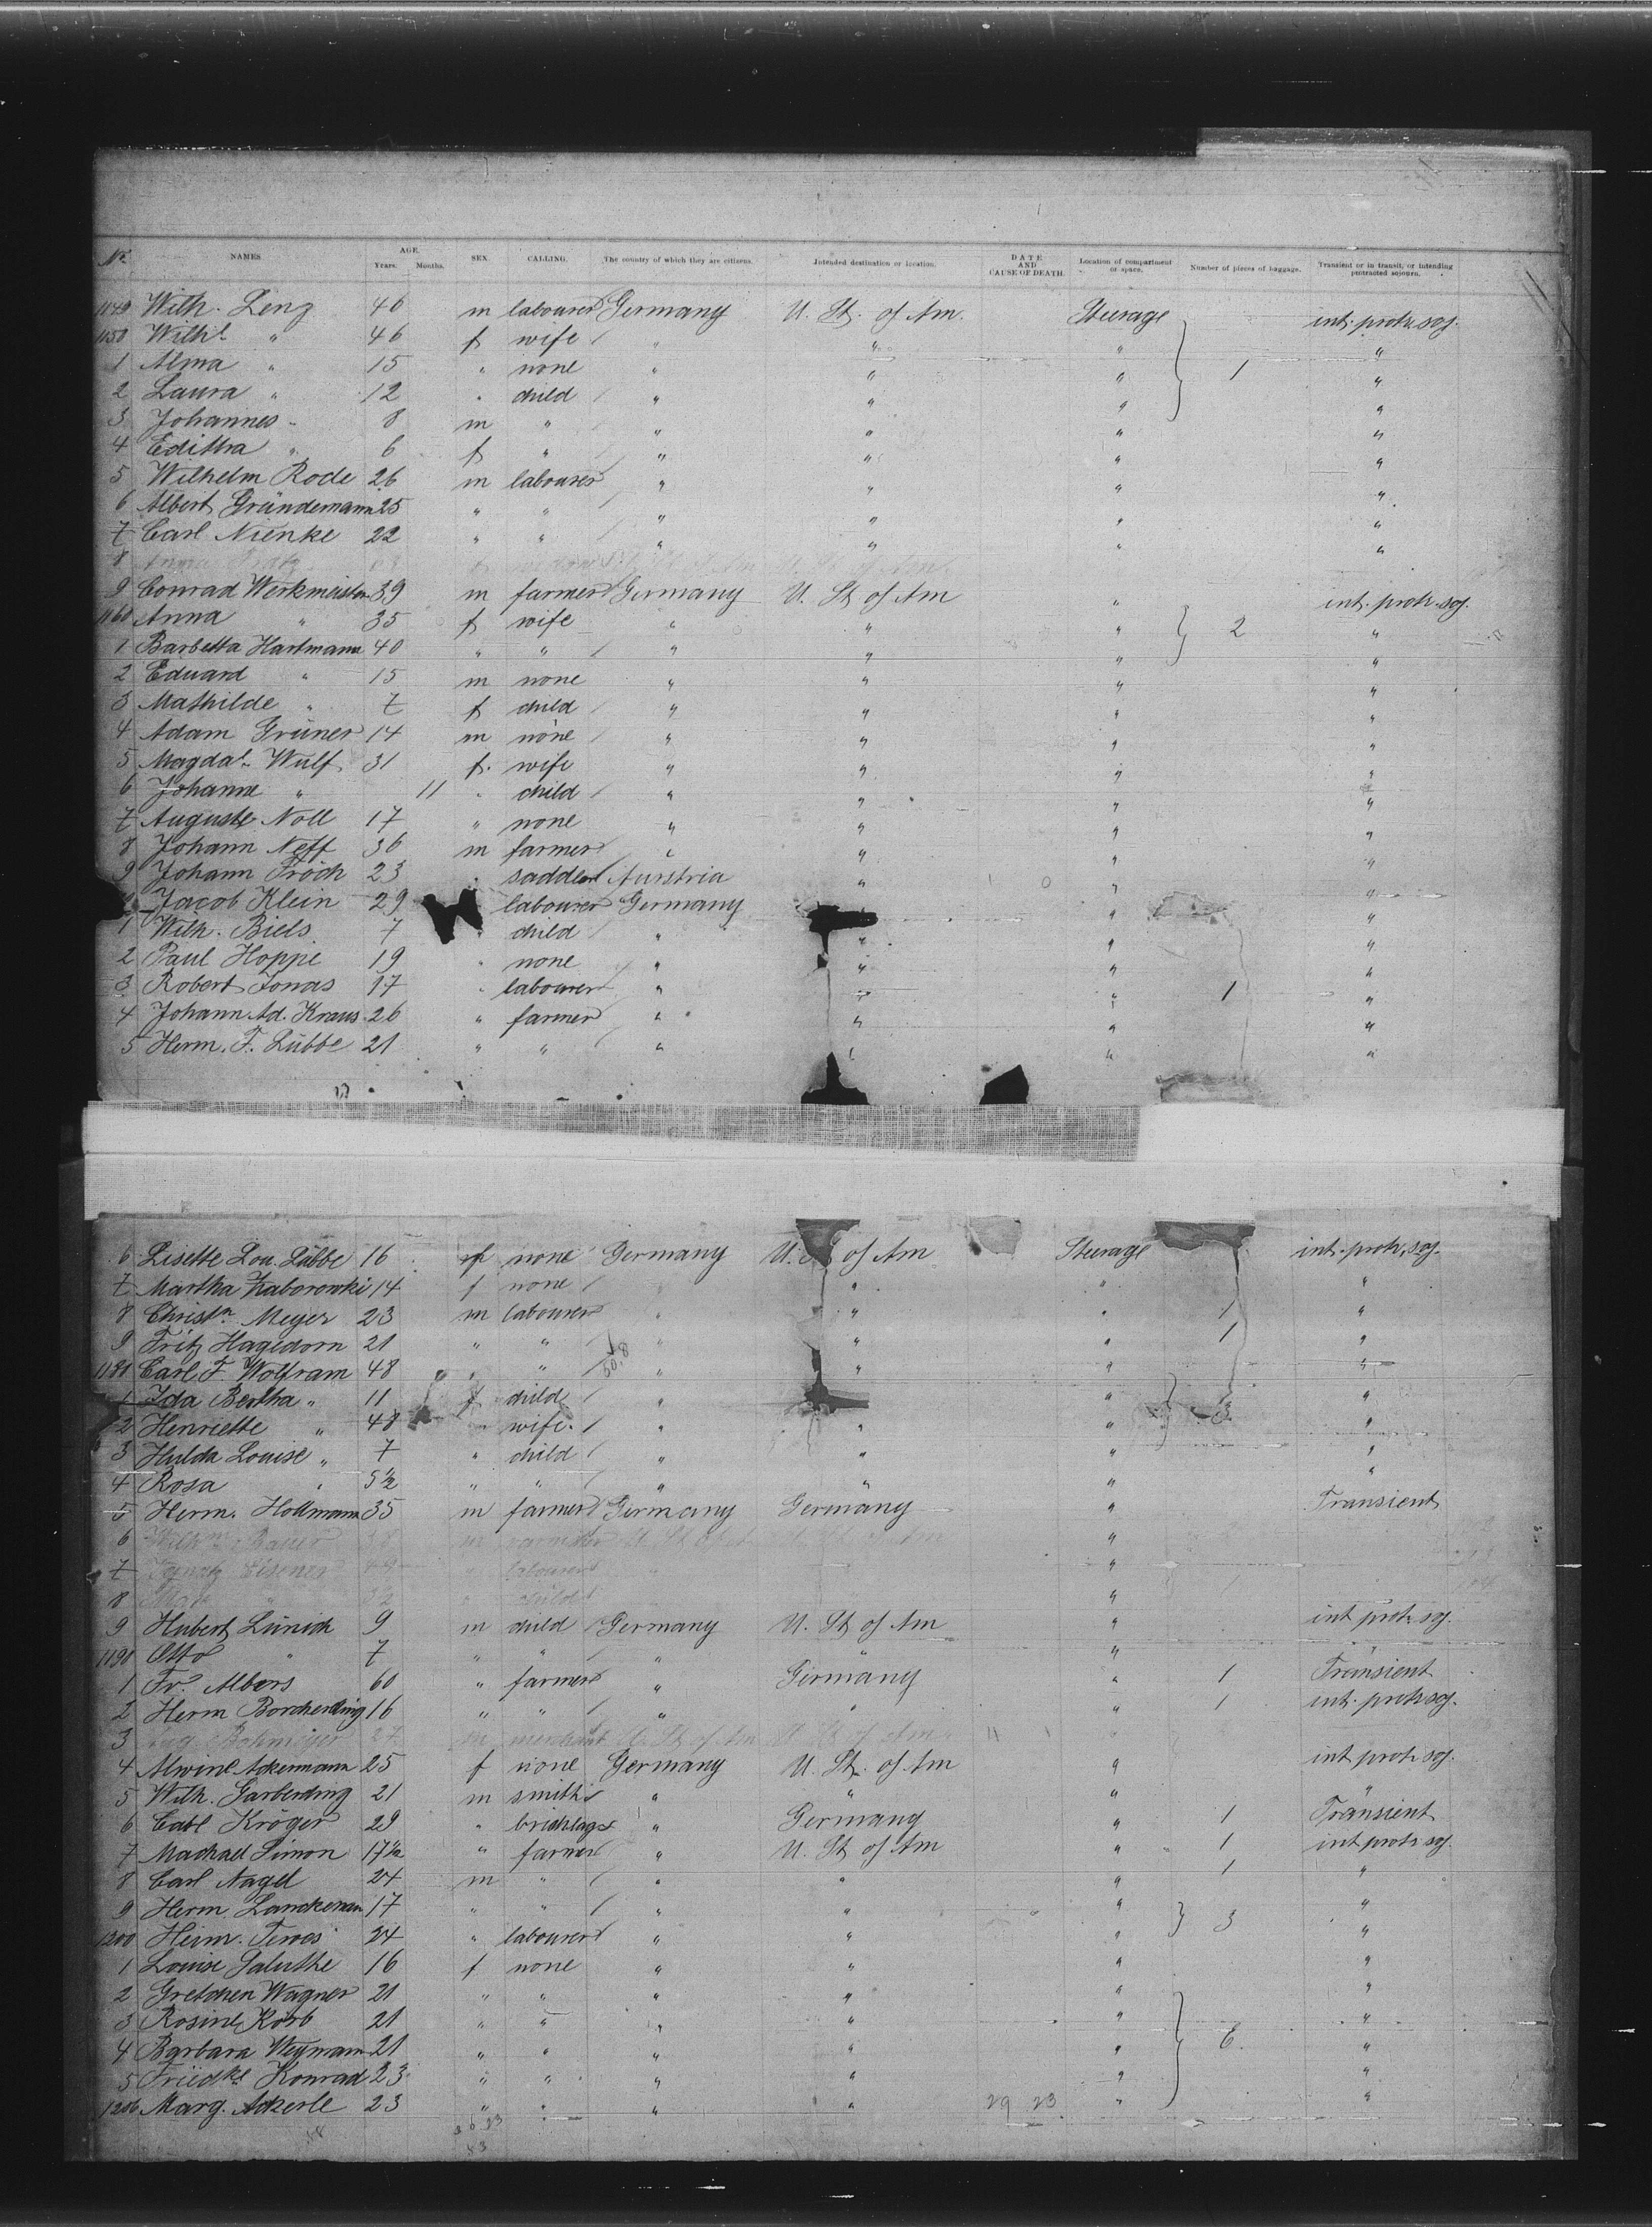 No. NAMES. AGE. Years. Months. SEX. CALLING. The country of which they are citizens. Intended destination or location. DATE AND CAUSE OF DEATH. Location of compartment or space. Number of pieces of baggage. Transient or in transit, or intending protracted sojourn.
1149 Wilh. Lenz 46 m labourer Germany U. St. of Am. Steerage int. protr. soj.
1150 Wilh. " 46 f wife " " " "
1 Alma " 15 " none " " " 1 "
2 Laura " 12 " child " " " "
3 Johannes " 8 m " " " " "
4 Editha " 6 f " " " " "
5 Wilhelm Rode 26 m labourer " " " "
6 Albert Gründemann 25 " " " " " "
7 Carl Nienke 22 " " " " " "
8
9 Conrad Werkmeister 39 m farmer Germany U. St of Am " int. protr. soj.
1160 Anna " 35 f wife " " " 2 "
1 Barbetta Hartmann 40 " " " " " "
2 Eduard " 15 m none " " " "
3 Mathilde " 7 f child " " " "
4 Adam Grüner 14 m none " " " "
5 Magdal. Wulf 31 f. wife " " " "
6 Johanne " 11 " child " " " "
7 Auguste Noll 17 " none " " " "
8 Johann Neff 36 m farmer " " " "
9 Johann Fröch 23 " saddler Austria " " "
Jacob Klein 29 labourer Germany " "
1 Wilh. Biels 7 " child " " " "
2 Paul Hoppe 19 " none " " " "
3 Robert Jonas 17 " labourer " " " 1 "
4 Johann Ad. Kraus 26 " farmer " " " "
5 Herm. F. Lübbe 21 " " " " " "
6 Lisette Lou. Lübbe 16 f none Germany U. of Am Steerage int. protr. soj.
7 Martha Zaborowski 14 f none " " "
8 Christn. Meyer 23 m labourer " " " 1 "
9 Fritz Hagedorn 21 " " " " " 1 "
1180 Carl F. Wolfram 48 " " " " " "
1 Ida Bertha " 11 f child " " "
2 Henriette " 48 wife " " " 3 "
3 Hulda Louise " 7 " child " " " "
4 Rosa " 5½ " " " " " "
5 Herm. Hollmann 35 m farmer Germany Germany " Transient
6 "
7 "
8 "
9 Hubert Lünich 9 m child Germany U. St of Am " int protr soj.
1190 Otto " 7 " " " " "
1 Fr. Albers 60 " farmer " Germany " 1 Transient
2 Herm Borcherding 16 " " " " " 1 int. protr soj.
3
4 Alwine Ackermann 25 f none Germany U. St. of Am " int protr soj.
5 Wilh. Garberding 21 m smith " " " "
6 Carl Kröger 29 " bricklayer " Germany " 1 Transient
7 Machael Simon 17½ " farmer " U. St of Am " 1 int protr soj.
8 Carl Nagel 24 m " " " " 1 "
9 Herm. Lanckenau 17 " " " " " 3 "
1200 Heinr. Tewes 24 " labourer " " " "
1 Louise 16 f none " " " "
2 Gretchen Wagner 21 " " " " " "
3 Rosine Korb 21 " " " " " "
4 Barbara Weymann 21 " " " " " 6. "
5 Friedke Konrad 23 " " " " " "
1206 Marg. Ackerle 23 " " " " 29 23 " "